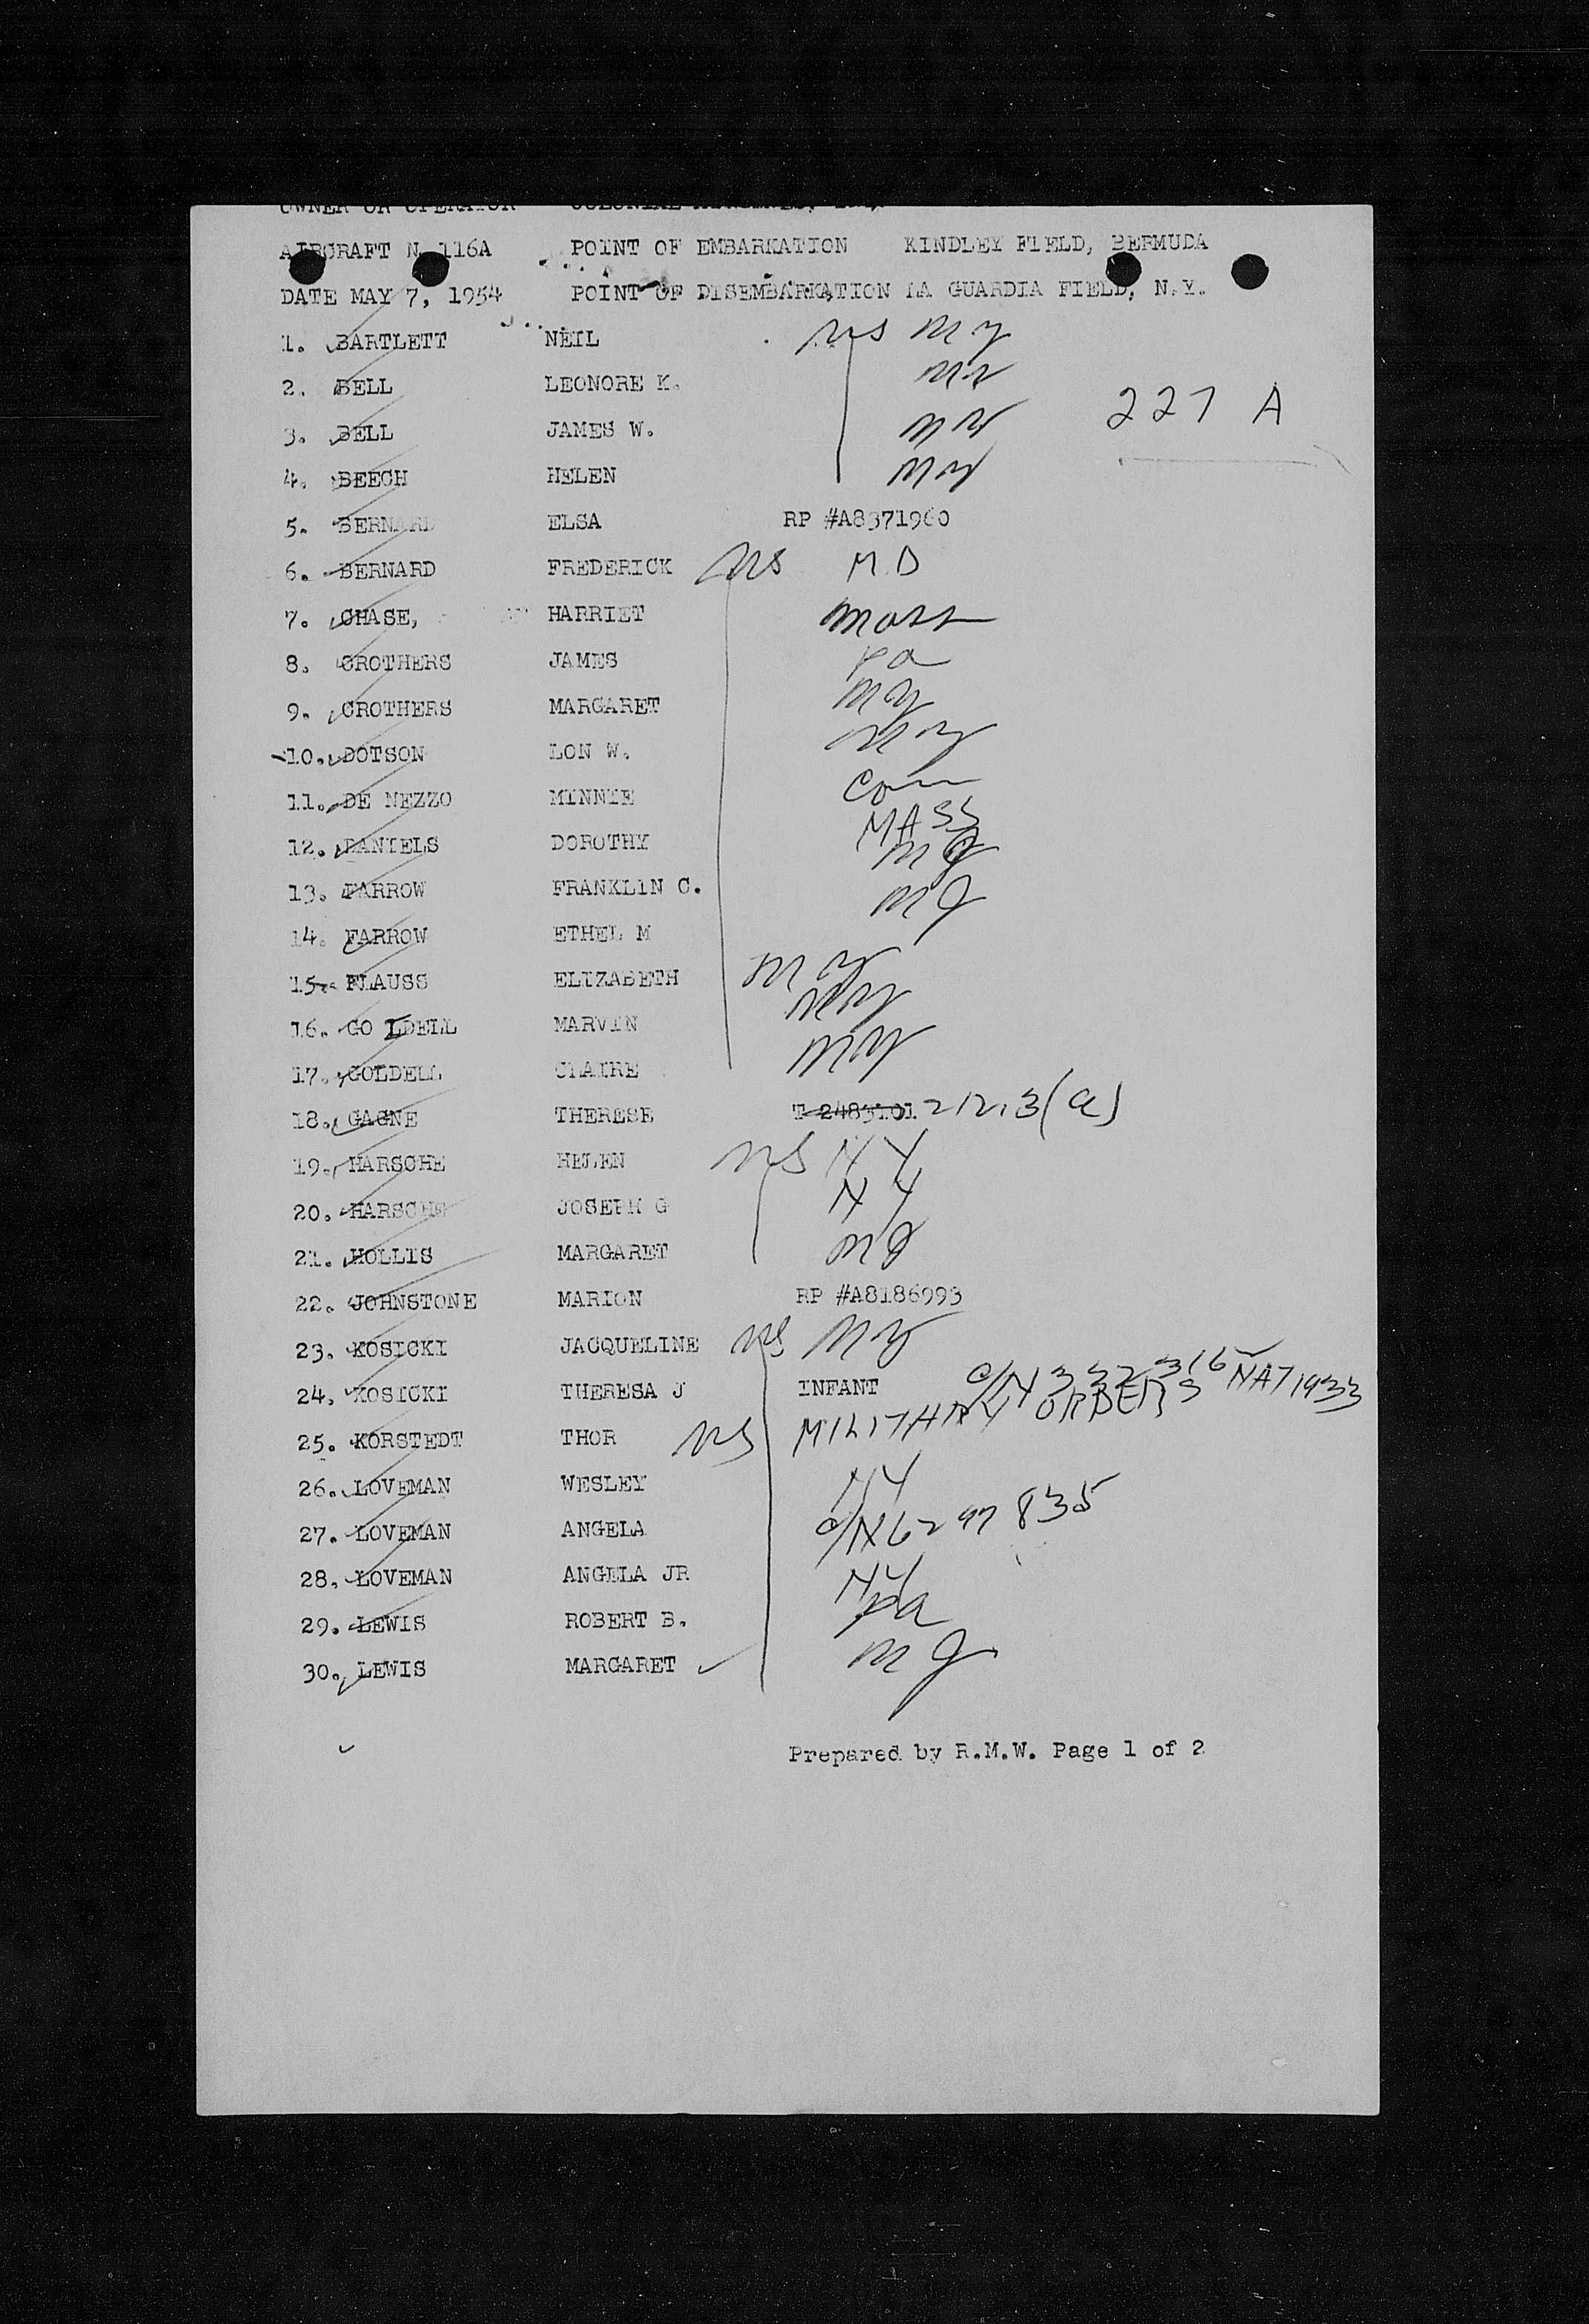 OWNER OR OPERATOR COLONIAL AIRLINES, INC.
AIRCRAFT N 116A POINT OF EMBARKATION KINDLEY FIELD, BERMUDA
DATE MAY 7, 1954 POINT OF DISEMBARKATION LA GUARDIA FIELD, N.Y.
1. BARTLETT NEIL US NY
2. BELL LEONORE K.
3. BELL JAMES W.
227 A
4. BEECH HELEN NY
5. BERNARD ELSA RP #A8371960
6. BERNARD FREDERICK US M.D
7. CHASE, HARRIET Mass
8. CROTHERS JAMES Pa
9. CROTHERS MARGARET NY
10. DOTSON LON W. NY
11. DE NEZZO MINNIE Conn
12. DANIELS DOROTHY MASS
13. FARROW FRANKLIN C. NJ
14. FARROW ETHEL M NJ
15. FLAUSS ELIZABETH NY
16. GO LDELL MARVIN NY
17. GOLDELL CLAIRE NY
18. GAGNE THERESE T-2483101 212.3(a)
19. HARSCHE HELEN US NY
20. HARSCHE JOSEPH G NY
21. HOLLIS MARGARET NJ
22. JOHNSTONE MARION RP #A8186993
23. KOSICKI JACQUELINE US NY
24. KOSICKI THERESA J INFANT C/N 332316 NAT 1933
25. KORSTEDT THOR US MILITARY ORDERS
26. LOVEMAN WESLEY NY
27. LOVEMAN ANGELA C/N 6297835
28. LOVEMAN ANGELA JR NY
29. LEWIS ROBERT B. Pa
30. LEWIS MARGARET NJ
Prepared by R.M.W. Page 1 of 2